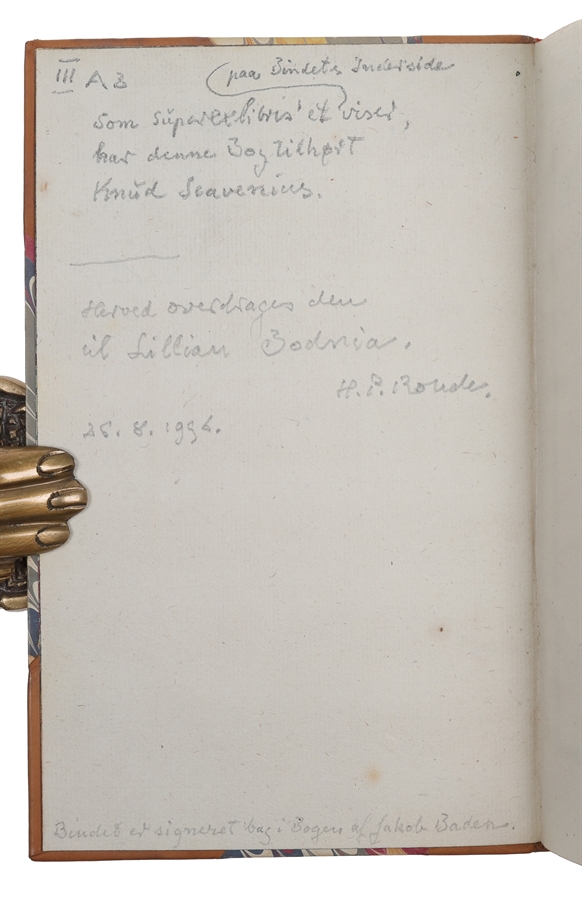 III A 3
paa Bindets Inderside
som superexlibris'et viser,
har denne Bog tilhørt
Knud Scavenius.
Herved overdrages den
til Lillian Bodnia.
H. P. Rohde.
8. 199
Bindet er signeret bag i Bogen af Jakob Baden.